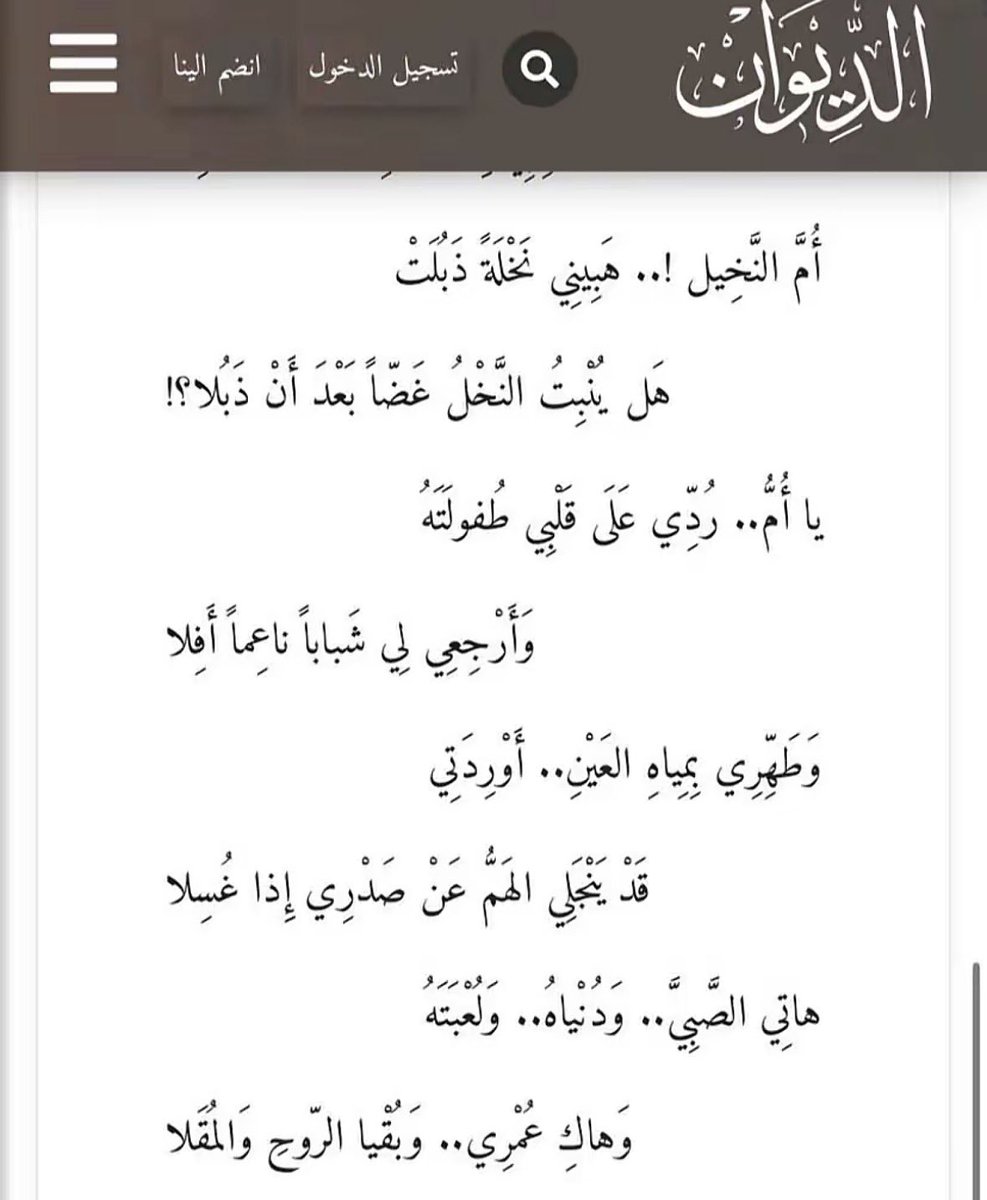 الدِّيْوَانْ
تسجيل الدخول
انضم الينا
أُمَّ النَّخِيل !.. هَبِينِي نَخْلَةً ذَبُلَتْ
هَل يُنْبِتُ النَّخْلُ غَضّاً بَعْدَ أَنْ ذَبُلا؟!
يا أُمُّ.. رُدِّي عَلَى قَلْبِي طُفولَتَهُ
وَأَرْجِعِي لِي شَباباً ناعِماً أَفِلا
وَطَهِّرِي بِمِياهِ العَيْنِ.. أَوْرِدَتِي
قَدْ يَنْجَلِي الهَمُّ عَنْ صَدْرِي إِذا غُسِلا
هاتِي الصَّبِيَّ.. وَدُنْياهُ.. وَلُعْبَتَهُ
وَهاكِ عُمْرِي.. وَبُقْيا الرّوحِ وَالمُقَلا